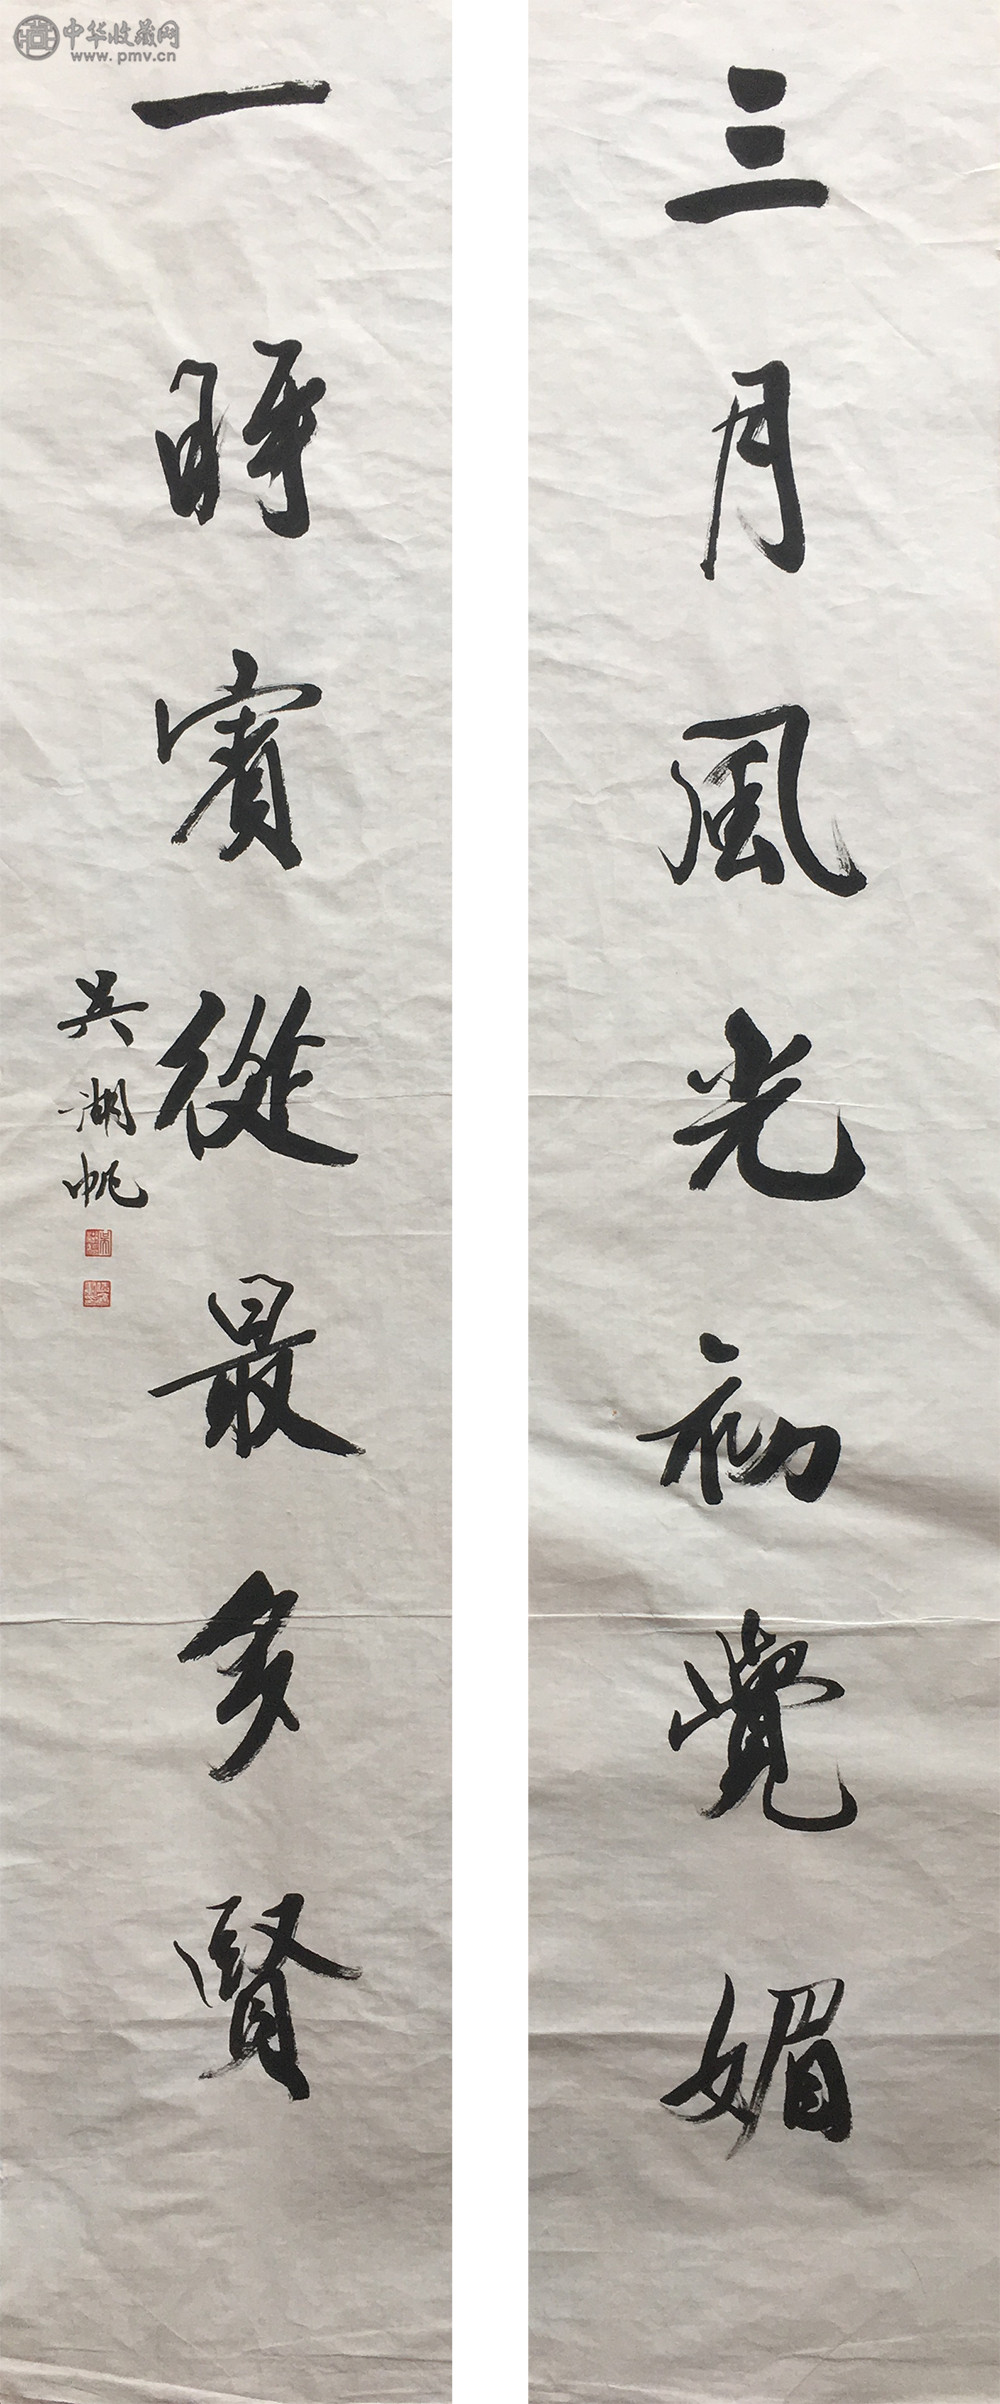 三月風光初覺媚
一時賓從最多賢
吳湖帆
中华收藏网
www.pmv.cn